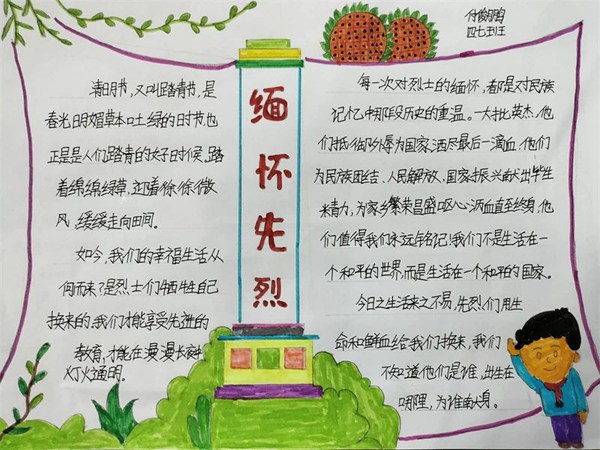 付俊鹏
四七班
缅怀先烈
清明节，又叫踏青节，是
春光明媚草木吐绿的时节也
正是是人们踏青的好时候，踏
着绵绵绿草，迎着徐徐微
风 缓缓走向田间。
如今，我们的幸福生活从
何而来？是烈士们牺牲自己
换来的，我们才能享受先进的
教育，才能在漫漫长
灯火通明。
每一次对烈士的缅怀，都是对民族
记忆中那段历史的重温。一大批英杰，他
们抵御外辱为国家洒尽最后一滴血，他们
为民族团结、人民解放、国家振兴献出毕生
精力，为家乡繁荣昌盛呕心沥血直至终身，他
们值得我们永远铭记！我们不是生活在一
个和平的世界，而是生活在一个和平的国家。
今日之生活来之不易，先烈们用生
命和鲜血给我们换来，我们
不知道他们是谁，出生在
哪哩，为谁献身。